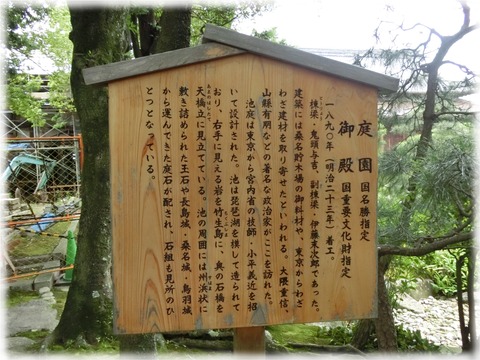 庭園 国名勝指定
御殿 国重要文化財指定
一八九〇年(明治二十三年)着工。
棟梁・鬼頭与吉、副棟梁・伊藤末次郎であった。
建築には桑名貯木場の御料材や、東京からわざ
わざ建材を取り寄せたといわれる。大隈重信、
山縣有朋などの著名な政治家がここを訪れた。
池庭は東京から宮内省の技師・小平義近を招
いて設計された。池は琵琶湖を模して造られて
おり、右手に見える岩を竹生島に、奥の石橋を
天橋立に見立てている。池の周囲には州浜状に
敷き詰められた玉石や長島城・桑名城・鳥羽城
から運んできた庭石が配され、石組も見所のひ
とつとなっている。